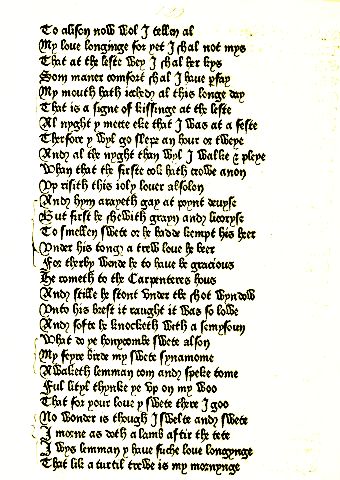 To alison now wol I tellen al
My love longinge for yet I shal not mys
That at the leste wey I shal her kys
Som maner comfort shal I have pfay
My mouth hath icched al this longe day
That is a signe of kissinge at the leste
Al nyght y mette eke that I was at a feste
Therfore y wyl go slepe an hour or tweye
And al the nyght than wyl I walke & pleye
Whan that the firste cok hath crowe anon
Up risith this ioly lover absolon
And hym arayeth gay at poynt devyse
But first he shewith grayn and licoryse
To smellen swete or he hadde kempt his heer
Under his tonge a trew love he beer
For therby wende he to have be gracious
He cometh to the Carpenteres hous
And stille he stont under the shot wyndow
Unto his brest it raught it was so lowe
And softe he knocketh with a semysoun
What do ye honycombe swete alison
My feyre birde my swete synamome
Awaketh lemman myn and speke tome
Ful lityl thynke ye up on my woo
That for your love y swete there I goo
No wonder is though I swelte and swete
I morne as doth a lamb aftir the tete
I wys lemman y have suche love longynge
That like a turtil trewe is my mornynge